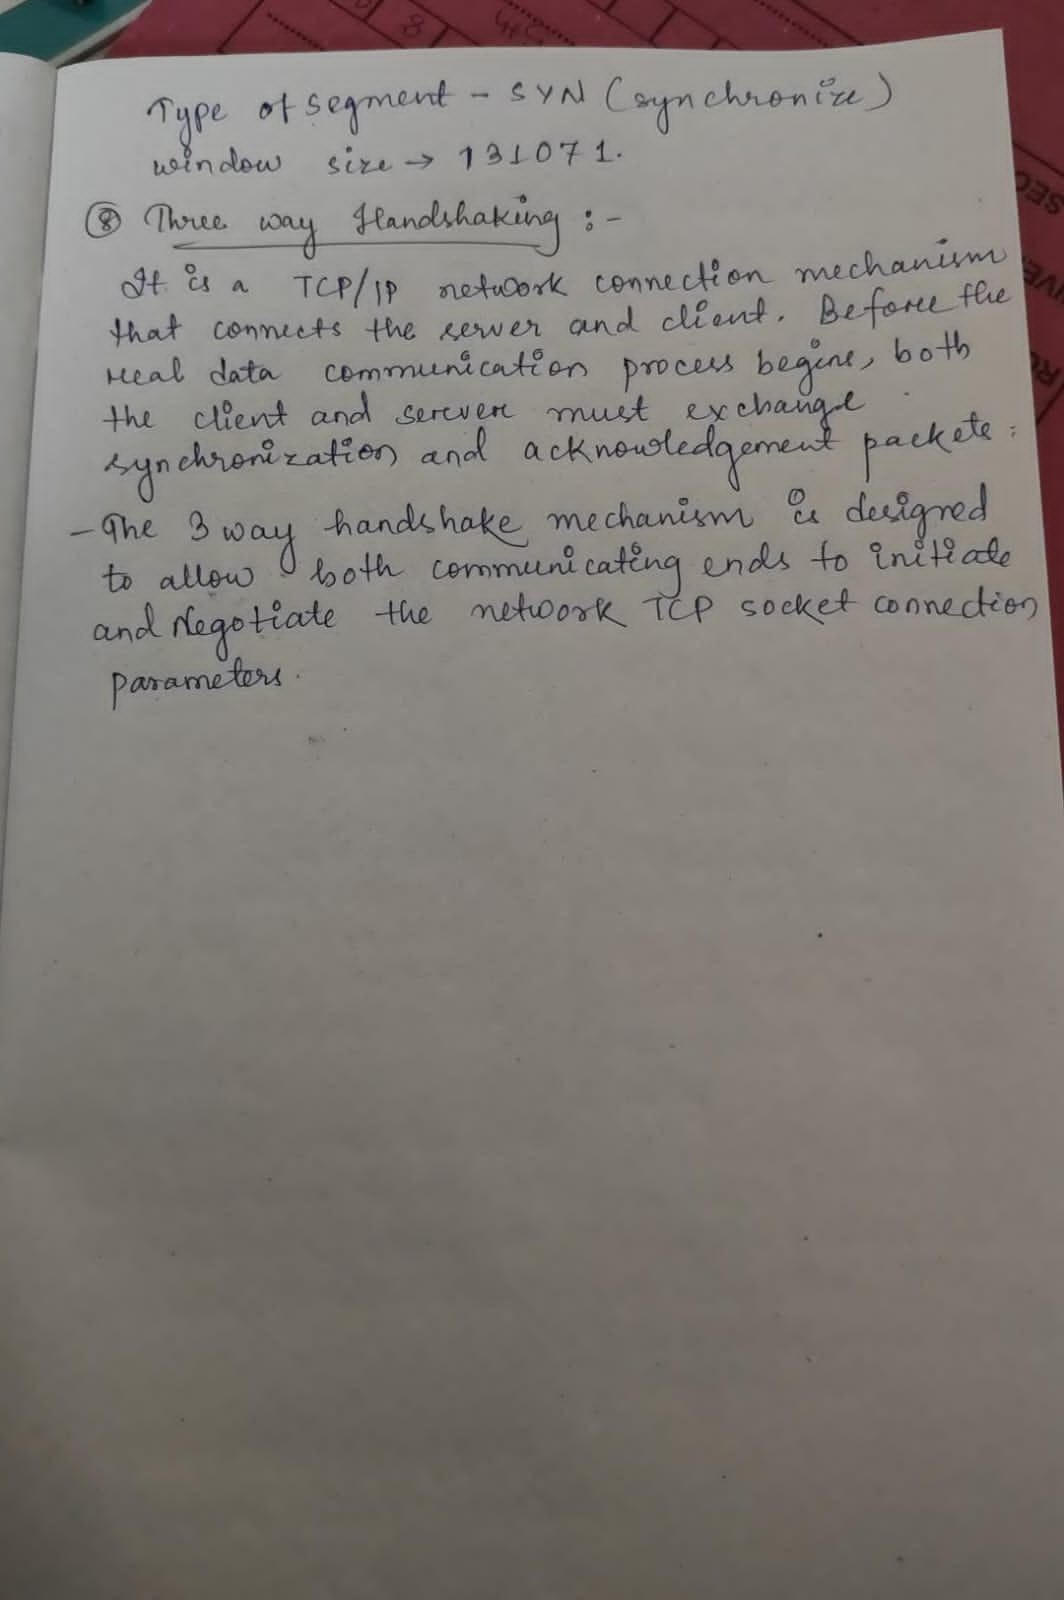 Type of segment - SYN (synchronize)
window size → 131071.
⑧ Three way Handshaking :-
It is a TCP/IP network connection mechanism
that connects the server and client. Before the
real data communication process begins, both
the client and server must exchange
synchronization and acknowledgement packets.
- The 3 way handshake mechanism is designed
to allow both communicating ends to initiate
and Negotiate the network TCP socket connection
parameters.